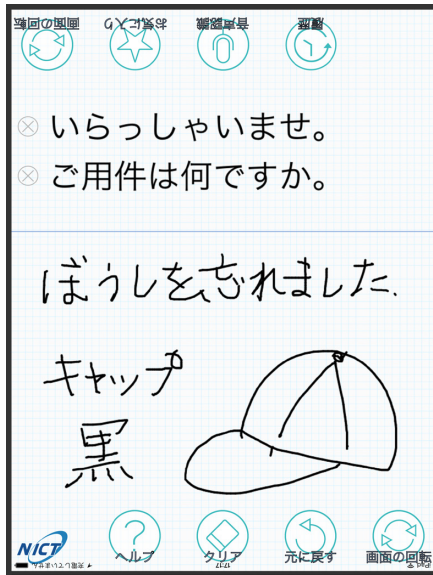 画面の回転 お気に入り 音声認識 履歴
いらっしゃいませ。
ご用件は何ですか。
ぼうしを忘れました.
キャップ
黒
NICT ヘルプ クリア 元に戻す 画面の回転
iPad 17:17 充電していません